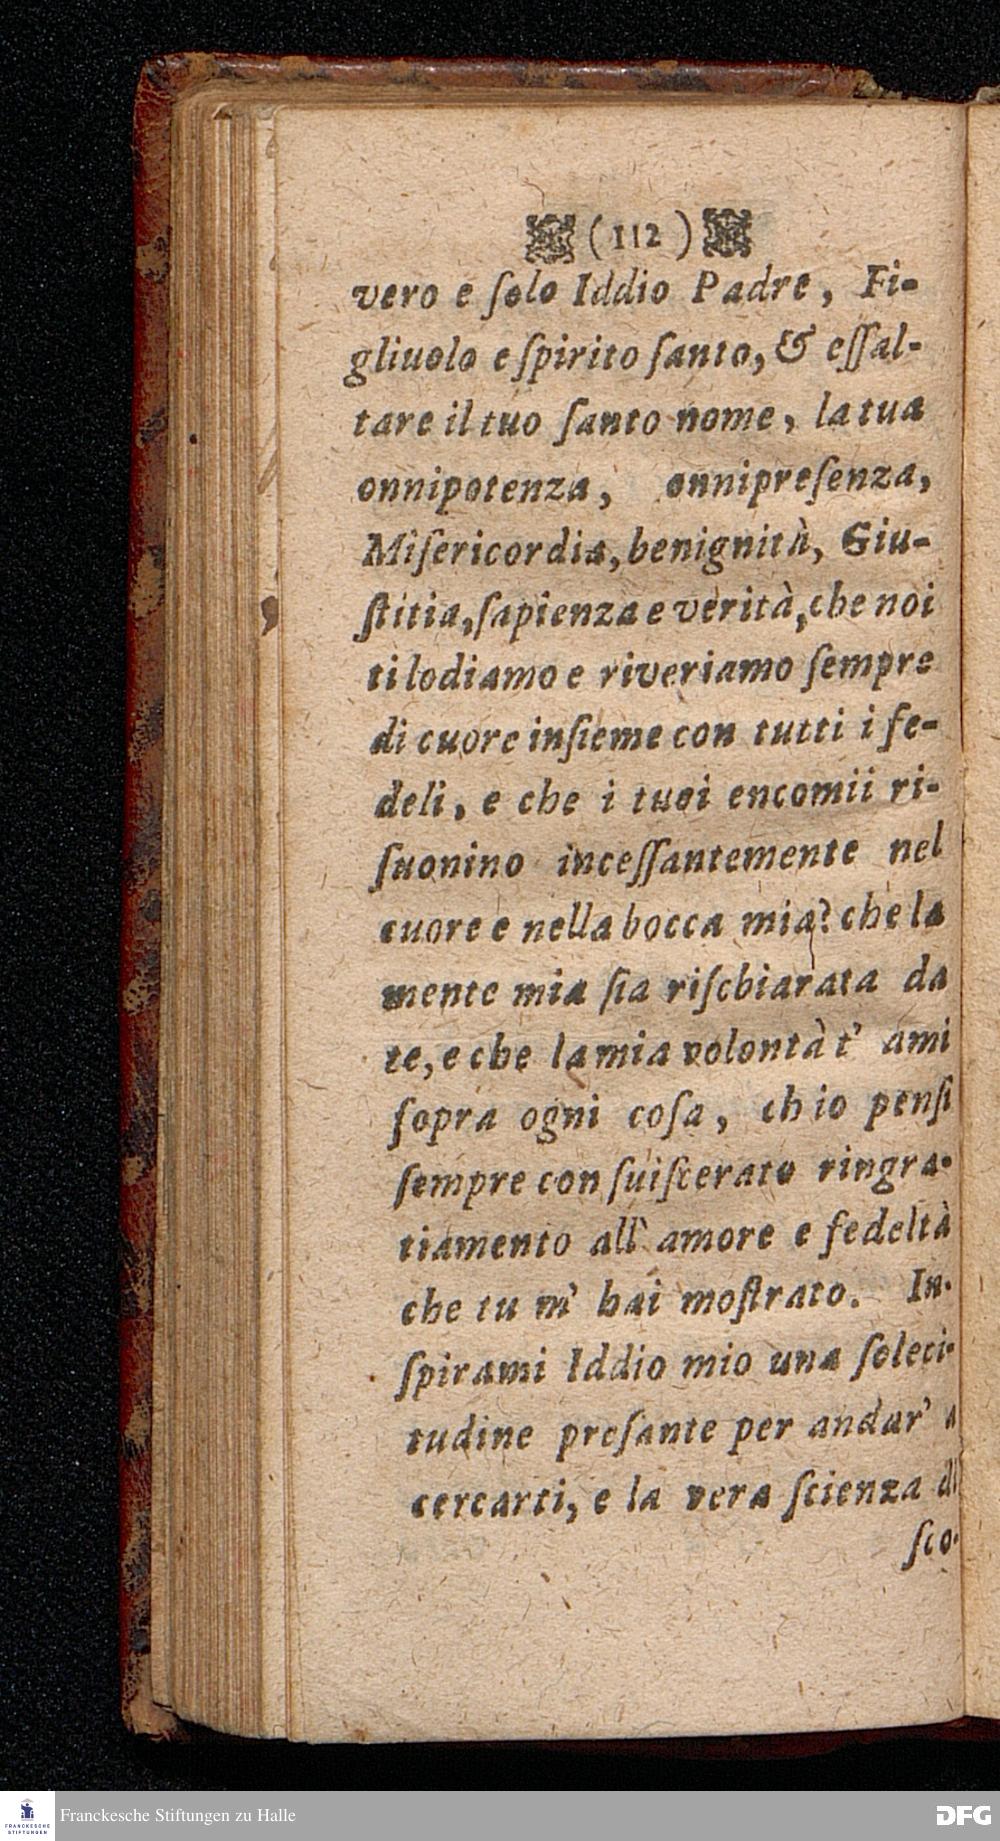 (112)
vero e ſolo Iddio Padre, Fi-
gliuolo e ſpirito ſanto, & eſſal-
tare il tuo ſanto nome, la tua
onnipotenza, onnipreſenza,
Miſericordia, benignità, Giu-
ſtitia, ſapienza e verità, che noi
ti lodiamo e riveriamo ſempre
di cuore inſieme con tutti i fe-
deli, e che i tuoi encomii ri-
ſuonino inceſſantemente nel
cuore e nella bocca mia? che la
mente mia ſia riſchiarata da
te, e che la mia volontà t' ami
ſopra ogni coſa, ch io penſi
ſempre con ſuiſcerato ringra-
tiamento all' amore e fedeltà
che tu m' hai moſtrato. In-
ſpirami Iddio mio una ſoleci-
tudine preſante per andar' a
cercarti, e la vera ſcienza di
ſco-
Franckesche Stiftungen zu Halle
FRANCKESCHE
STIFTUNGEN
DFG